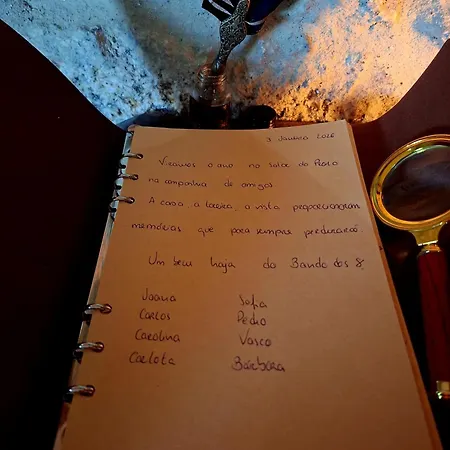 3 Janeiro 2026
Virámos o ano no Solar do Pião
na companhia de amigos.
A casa, a lareira, a vista proporcionaram
memórias que para sempre perdurarão.
Um bem haja do Bando dos 8,
Joana Sofia
Carlos Pedro
Carolina Vasco
Carlota Bárbara